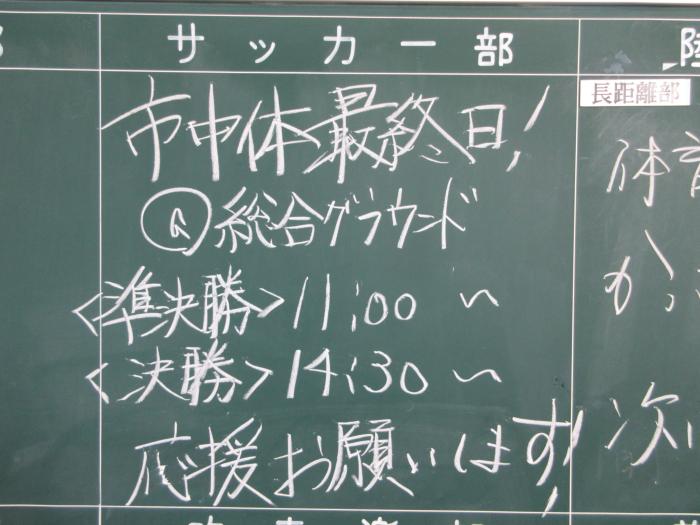 サッカー部
市中体最終日!
@総合グラウンド
<準決勝>11:00 〜
<決勝>14:30 〜
応援お願いします!
陸
長距離部
体育
か
次い